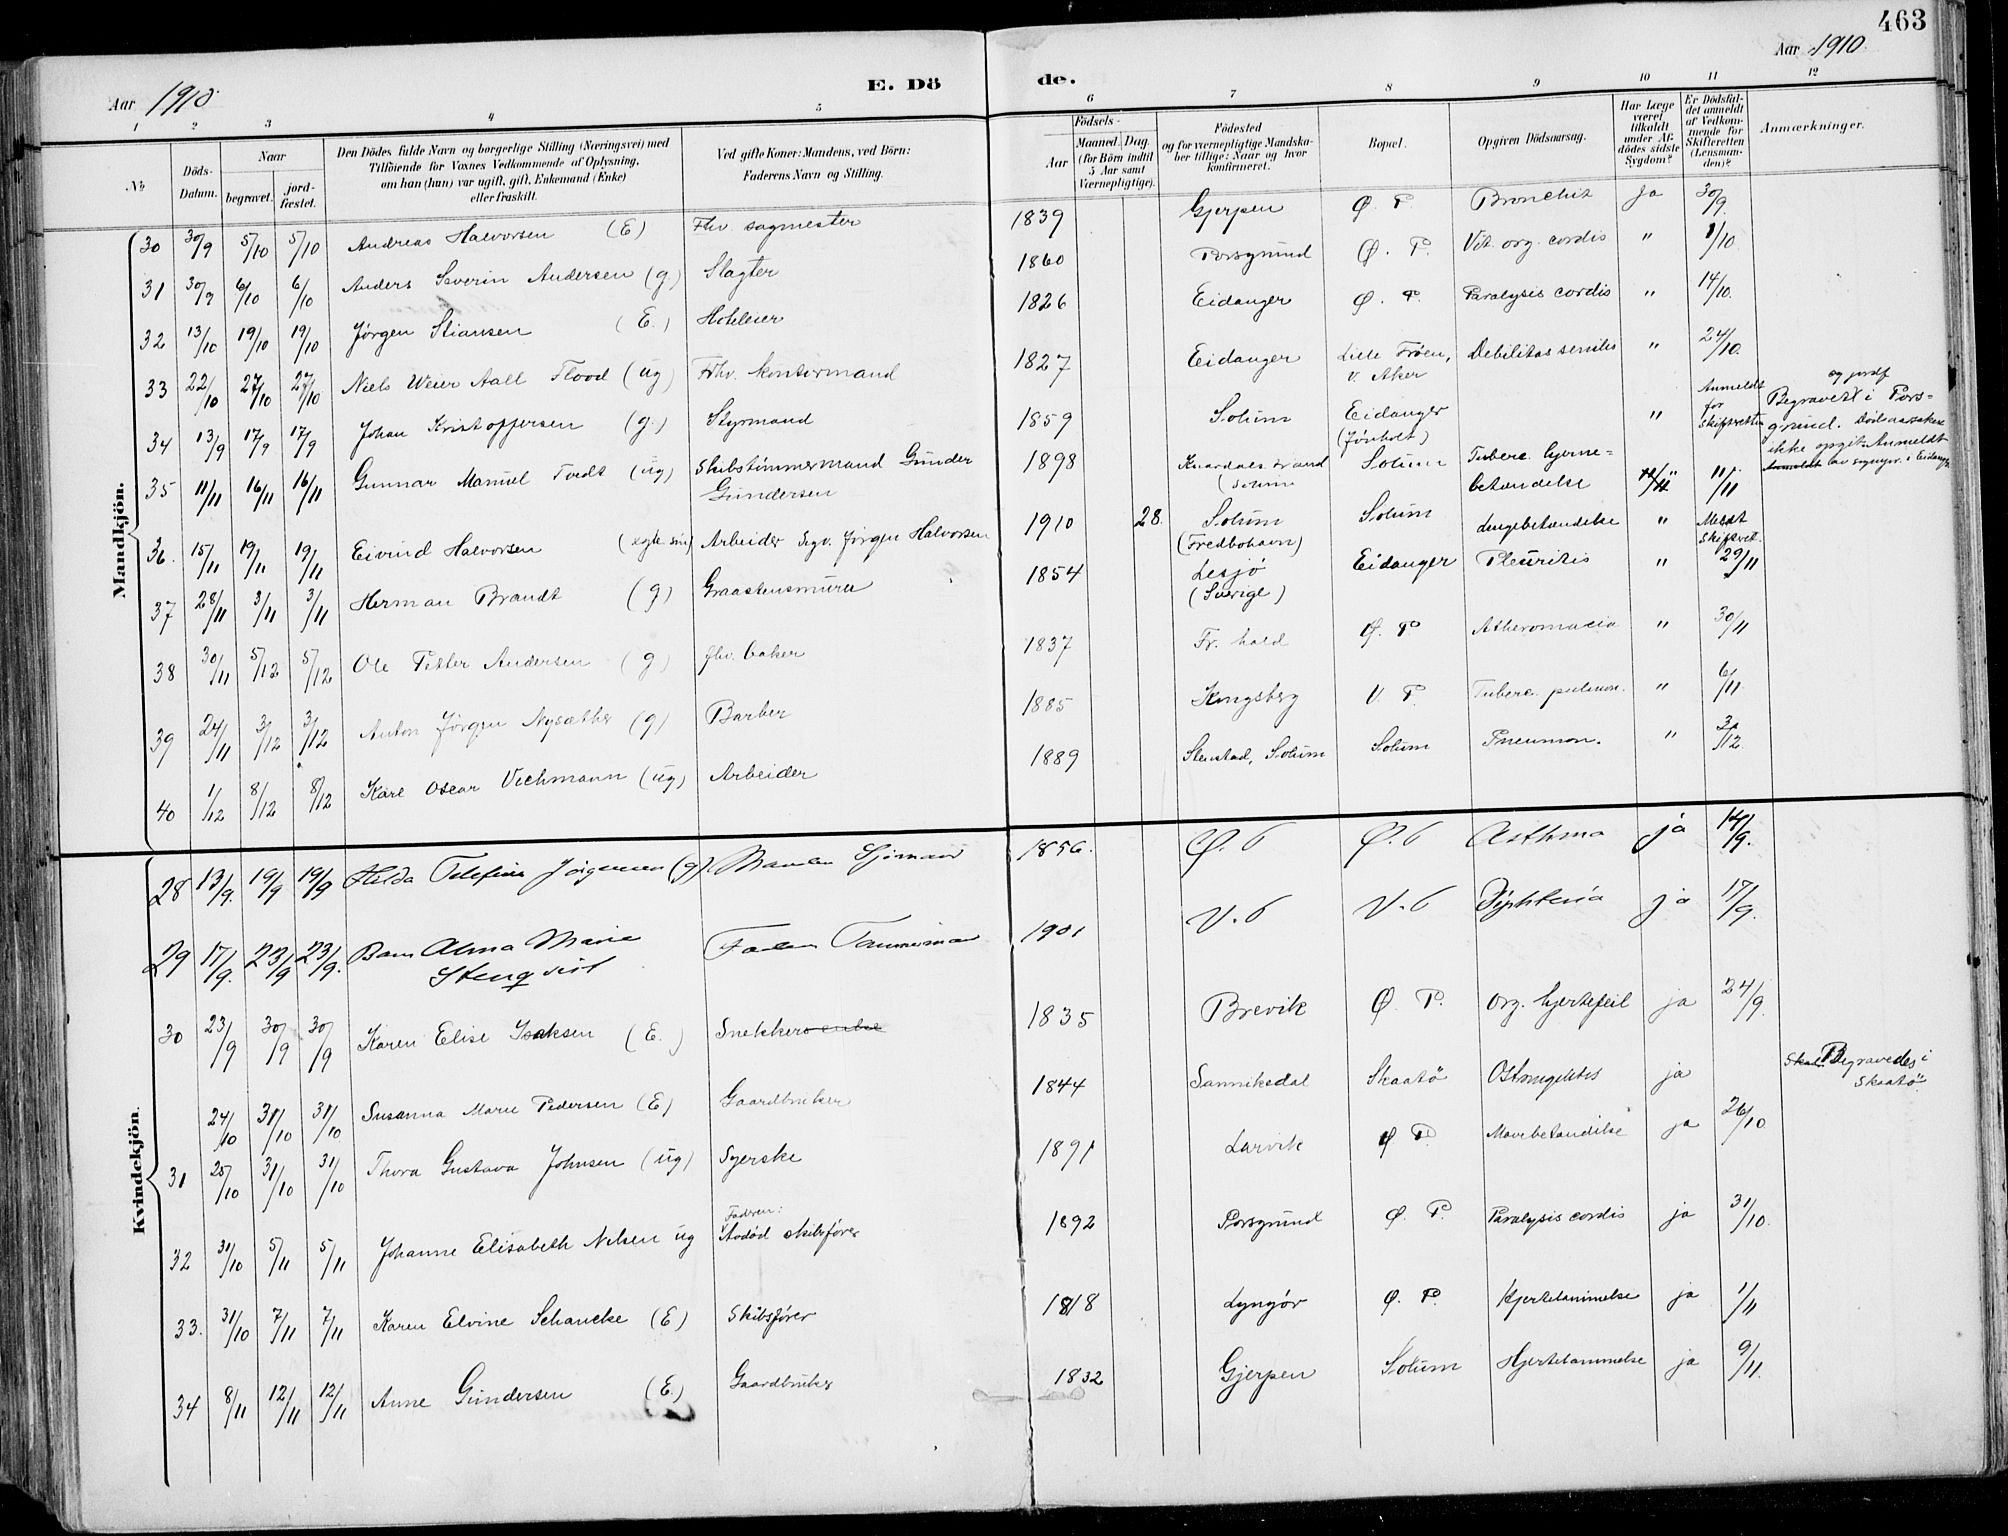 463
Aar 1910. E. Dö de. Aar 1910.
1 2 3 4 5 6 7 8 9 10 11 12
No. Döds-Datum. Naar begravet. jord-fæstet. Den Dödes fulde Navn og borgerlige Stilling (Næringsvei) med Tilföiende for Voxnes Vedkommende af Oplysning, om han (hun) var ugift, gift, Enkemand (Enke) eller fraskilt. Ved gifte Koner: Mandens, ved Börn: Faderens Navn og Stilling. Födsels- Aar Maaned. Dag. (for Börn indtil 5 Aar samt Værnepligtige). Födested og for værnepligtige Mandskaber tillige: Naar og hvor konfirmeret. Bopæl. Opgiven Dödsaarsag. Har Læge været tilkaldt under Afdödes sidste Sygdom? Er Dödsfaldet anmeldt af Vedkommende for Skifteretten (Lensmanden)? Anmærkninger.
Mandkjön.
30 30/9 5/10 5/10 Andreas Halvorsen (E) Fhv. sagmester 1839 Gjerpen Ø. P Bronchit Ja 30/9.
31 30/9 6/10 6/10 Anders Severin Andersen (g) Slagter 1860 Porsgrund Ø. P. Vit. org. cordis " 1/10.
32 13/10 19/10 19/10 Jørgen Stiansen (E.) Hoteleier 1826 Eidanger Ø. P. Paralysis cordis " 14/10.
33 22/10 27/10 27/10 Niels Weier Aall Flood (ug) Fhv. kontormand 1827 Eidanger Lille Frøen, v. Aker Debilitas senilis " 24/10.
34 13/9 17/9 17/9 Johan Kristoffersen (g.) Styrmand 1859 Solum Eidanger (Jønholt) " Anmeldt for Skifteretten Begravet og jordf i Porsgrund. Dødsaarsaken ikke opgit. Anmeldt
35 11/11 16/11 16/11 Gunnar Manuel Tvedt (ug) Skibstømmermand Gunder Gundersen 1898 Knardalsstrand Solum Solum Tuberc. hjernebetændelse " 11/11
36. 15/11 19/11 19/11 Eivind Halvorsen Arbeider Jørgen Halvorsen 1910 28. Solum (Fredbohavn) Solum Lungebetændelse " Meldt Skiftret.
37 28/11 3/11 3/11 Herman Brandt (g) Graastensmurer 1854 Lesjö (Sverige) Eidanger Pleuritis " 29/11
38 30/11 5/12 5/12 Ole Petter Andersen (g) fhv. baker 1837 Fr. hald Ø. P Atheromacia " 30/11
39 24/11 3/12 3/12 Anton Jørgen Nysæther (g) Barber 1885 Kongsberg V. P. Tuberc. pulmon. " 6/11
40 1/12 8/12 8/12 Karl Oscar Vichmann (ug) Arbeider 1889 Stenstad, Solum Solum Pneumon. " 3/12
Kvindekjön.
28 13/9. 19/9 19/9 Hilda Jørgensen (g) Manden Sjømand 1856. Ø. P Ø. P Asthma ja 14/9.
29 17/9. 23/9 23/9. Barn Alma Marie Stenqvist Faderen Tømmermand 1901 V. P V. P Diphteria ja 17/9.
30 23/9 30/9 30/9 Karen Elise Isaksen (E.) Snekkers enke 1835 Brevik Ø P. Org. hjertefeil ja 24/9.
24/10 31/10 31/10 Susanna Marie Pedersen (E) Gaardbruker 1844 Sannikedal Skaatö ja Begravedes i Skaatö
31 25/10 31/10 31/10 Thora Gustava Johnsen (ug) Syerske 1891 Larvik Ø P Mavebetændelse ja 26/10
32 31/10 5/11 5/11 Johanne Elisabeth Nilsen ug Faderen: Avdød skibsfører 1892 Porsgrund Ø. P. Paralysis cordis ja 31/10.
33. 31/10 7/11 7/11 Karen Elvine Schancke (E) Skibsfører 1818 Lyngør Ø. P. Hjertelammelse ja 1/11
34 8/11 12/11 12/11 Anne Gundersen (E.) Gaardbruker 1832 Gjerpen Solum Hjertelammelse ja 9/11.